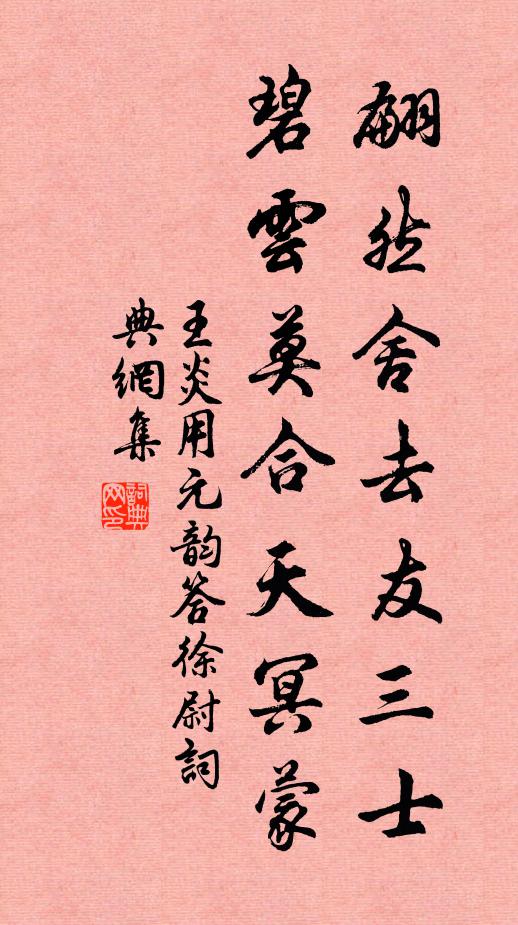 翩然舍去友三士
碧雲莫合天冥蒙
王炎用元韵答徐尉詞
典網集
詞典网印